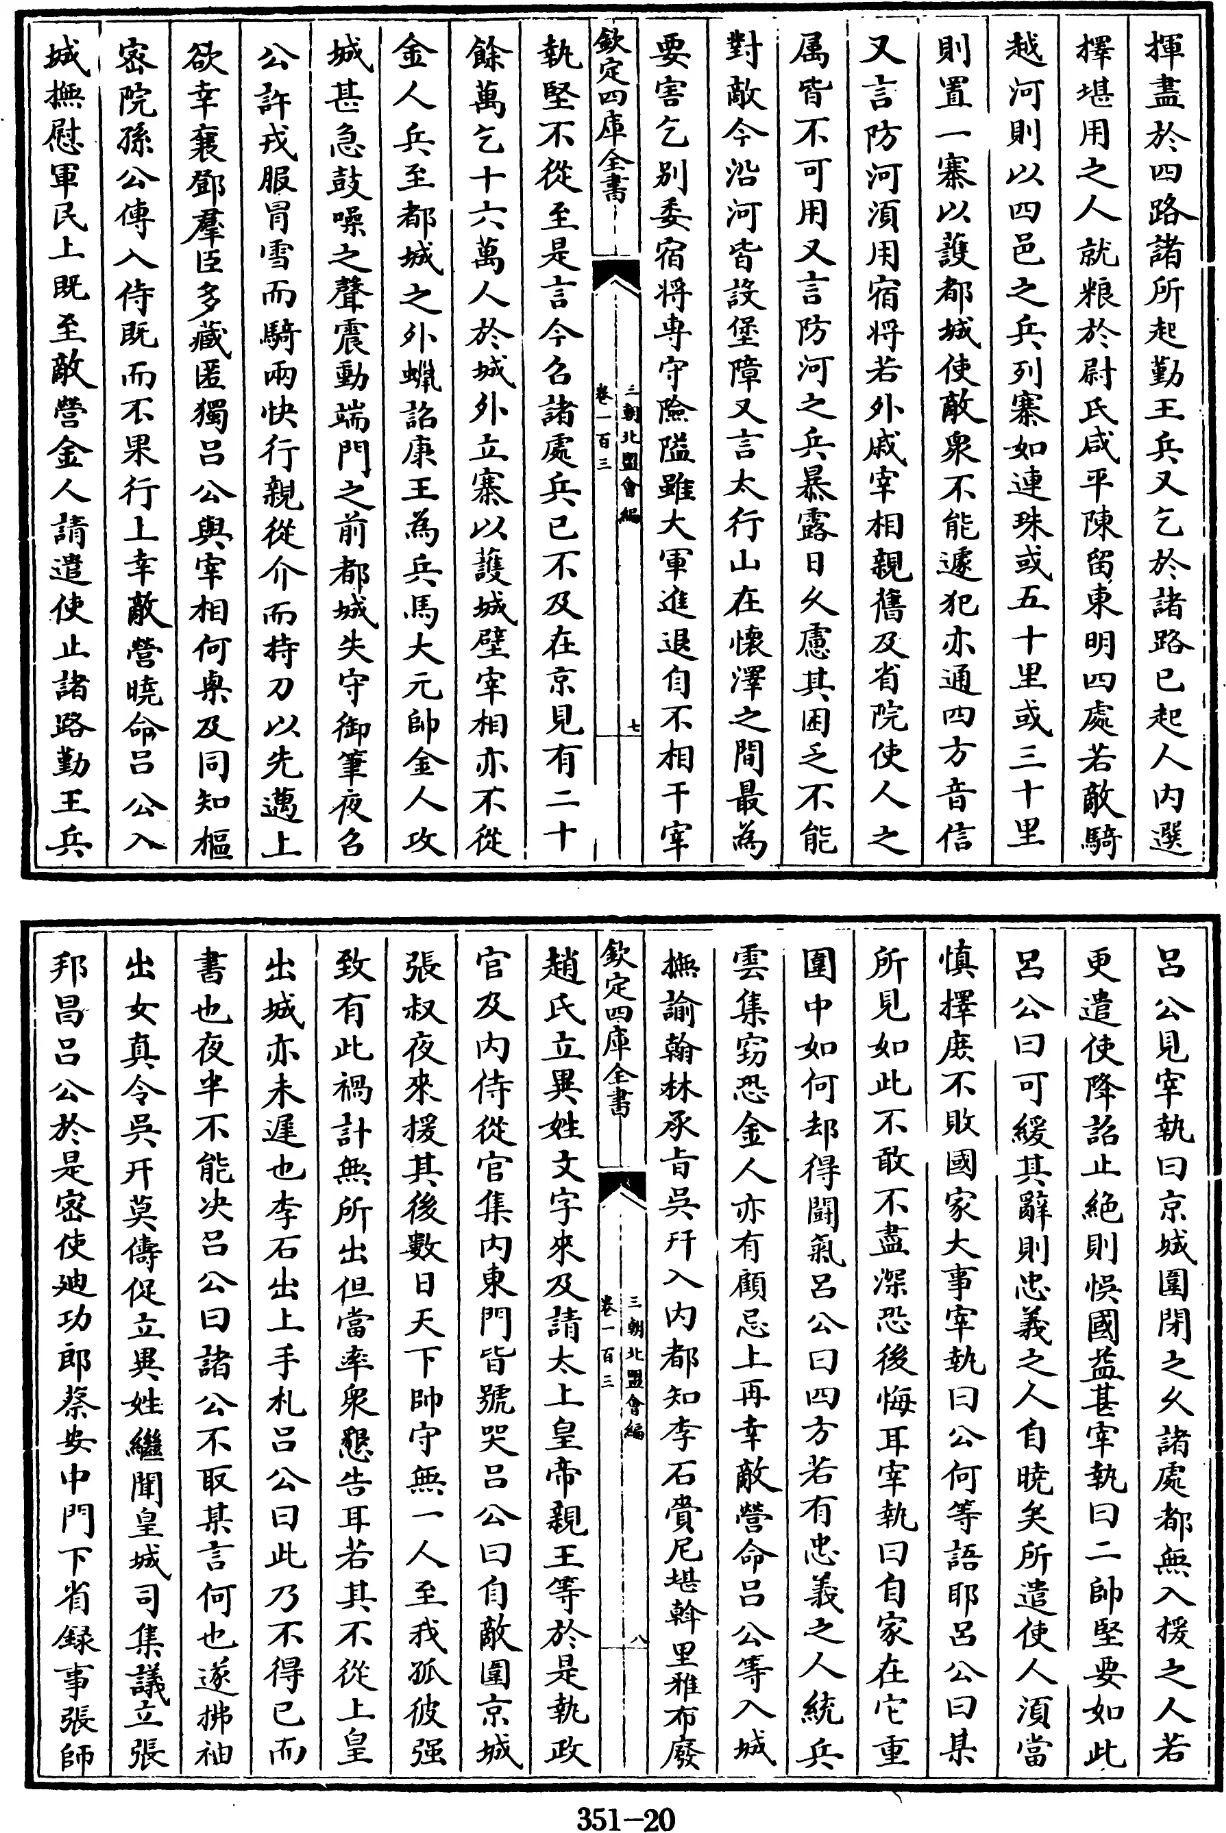 揮盡於四路諸所起勤王兵又乞於諸路已起人内選
擇堪用之人就粮於尉氏咸平陳留東明四處若敵騎
越河則以四邑之兵列寨如連珠或五十里或三十里
則置一寨以護都城使敵衆不能遽犯亦通四方音信
又言防河湏用宿將若外戚宰相親舊及省院使人之
属皆不可用又言防河之兵暴露日乆慮其困乏不能
對敵今沿河皆設堡障又言太行山在懐澤之間最為
要害乞别委宿將専守險隘雖大軍進退自不相干宰
欽定四庫全書
三朝北盟會編
卷一百三
七
執堅不從至是言今召諸處兵已不及在京見有二十
餘萬乞十六萬人於城外立寨以護城壁宰相亦不從
金人兵至都城之外蠟詔康王為兵馬大元帥金人攻
城甚急鼓噪之聲震動端門之前都城失守御筆夜召
公許戎服冒雪而騎兩快行親從介而持刀以先邁上
欲幸襄鄧羣臣多藏匿獨呂公與宰相何㮚及同知樞
密院孫公傅入侍既而不果行上幸敵營曉命呂公入
城撫慰軍民上既至敵營金人請遣使止諸路勤王兵
呂公見宰執曰京城圍閉之乆諸處都無入援之人若
更遣使降詔止絶則悞國益甚宰執曰二帥堅要如此
呂公曰可緩其辭則忠義之人自曉矣所遣使人湏當
慎擇庶不敗國家大事宰執曰公何等語耶呂公曰某
所見如此不敢不盡深恐後悔耳宰執曰自家在它重
圍中如何却得闘氣呂公曰四方若有忠義之人統兵
雲集竊恐金人亦有顧忌上再幸敵營命呂公等入城
撫諭翰林承㫖吳幵入内都知李石賫尼堪斡里雅布廢
欽定四庫全書
三朝北盟會編
卷一百三
八
趙氏立異姓文字來及請太上皇帝親王等於是執政
官及内侍從官集内東門皆號哭呂公曰自敵圍京城
張叔夜來援其後數日天下帥守無一人至我孤彼强
致有此禍計無所出但當率衆懇告耳若其不從上皇
出城亦未遲也李石出上手札呂公曰此乃不得已而
書也夜半不能决呂公曰諸公不取某言何也遂拂袖
出女真令吳幵莫儔促立異姓繼聞皇城司集議立張
邦昌呂公於是密使廸功郎蔡安中門下省録事張師
351-20